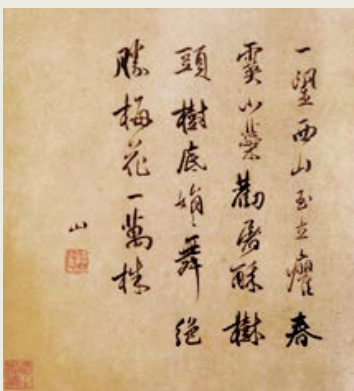 一望西山玉立癯春
霙小蘂勸屠酥樹
頭樹底娟〻舞絕
勝梅花一萬株
山